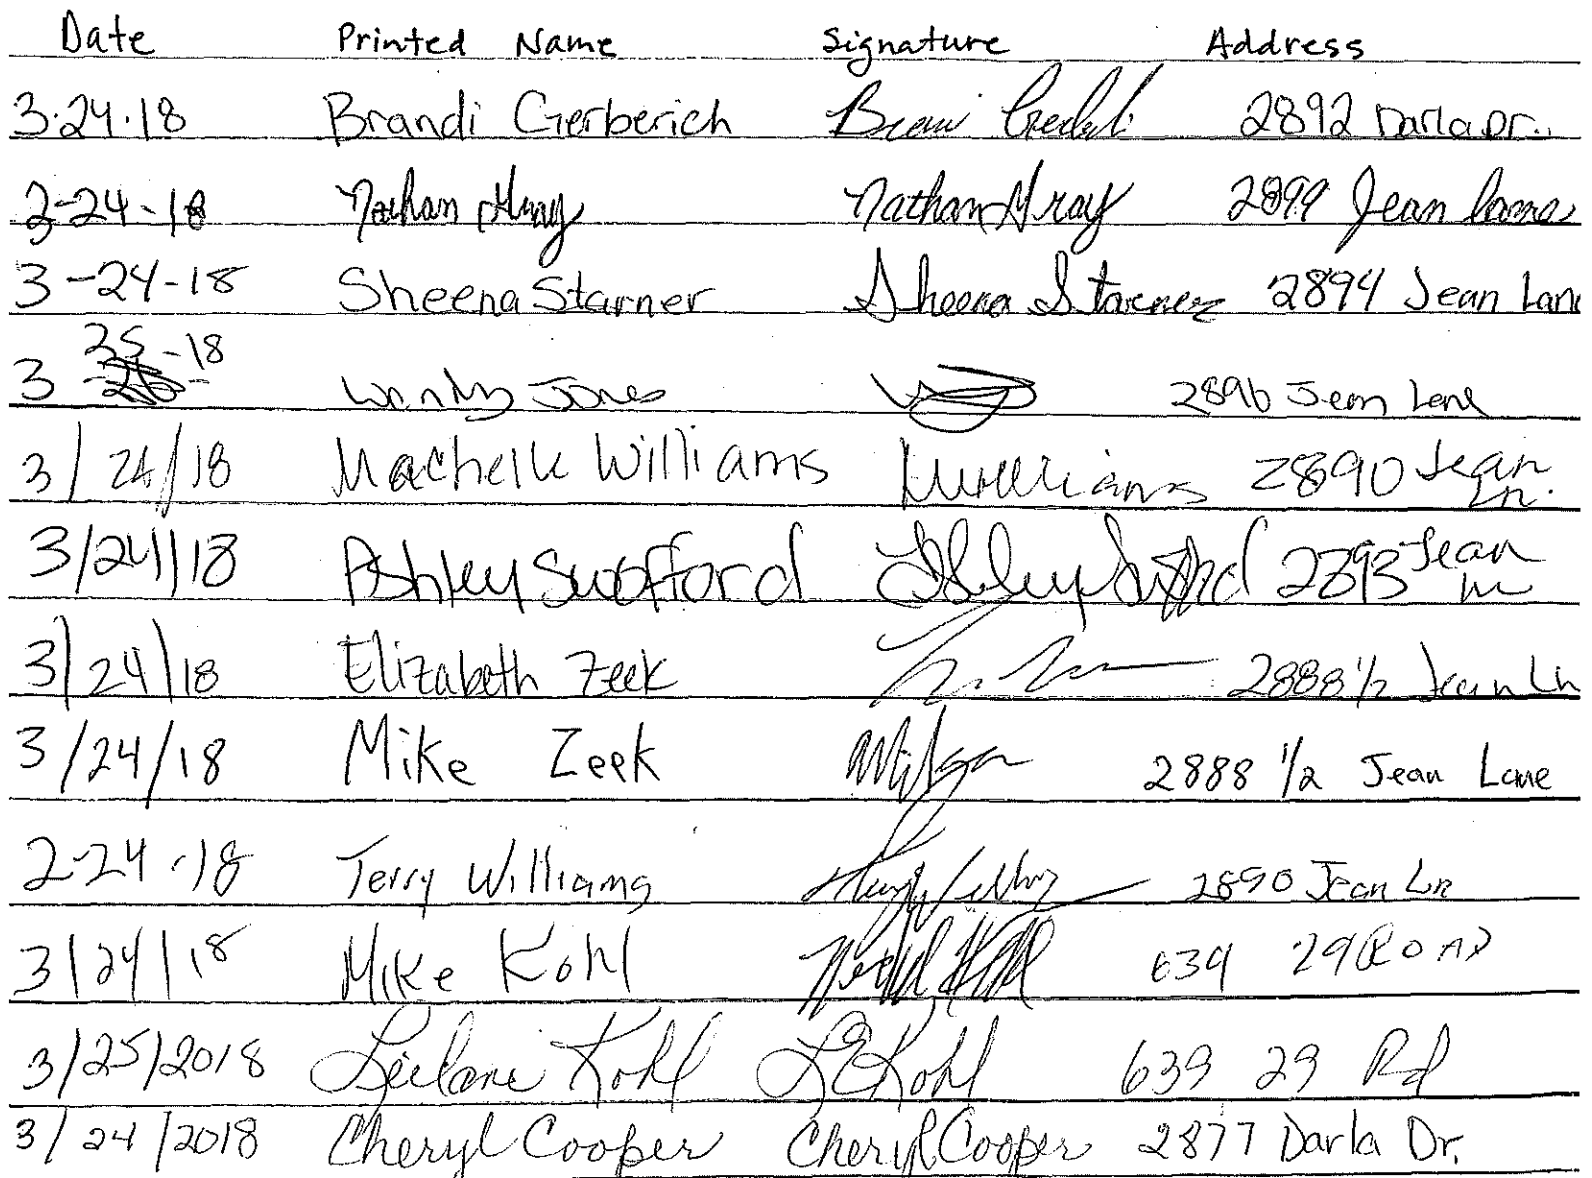 Date Printed Name Signature Address
3.24.18 Brandi Gerberich 2892 Darla Dr.
2-24-18 Nathan Gray Nathan Gray 2899 Jean Lane
3-24-18 Sheena Starner Sheena Starner 2894 Jean Lane
3 25-18 Jones 2896 Jean Lane
3/24/18 Machelle Williams MWilliams 2890 Jean Ln.
3/24/18 Ashley Swofford Ashley Swofford 2893 Jean Ln
3/24/18 Elizabeth Zeek 2888 1/2 Jean Ln
3/24/18 Mike Zeek 2888 1/2 Jean Lane
2-24-18 Terry Williams 2890 Jean Ln
3/24/18 Mike Kohl 639 29 ROAD
3/25/2018 Leilani Kohl LEKohl 639 29 Rd
3/24/2018 Cheryl Cooper Cheryl Cooper 2877 Darla Dr.